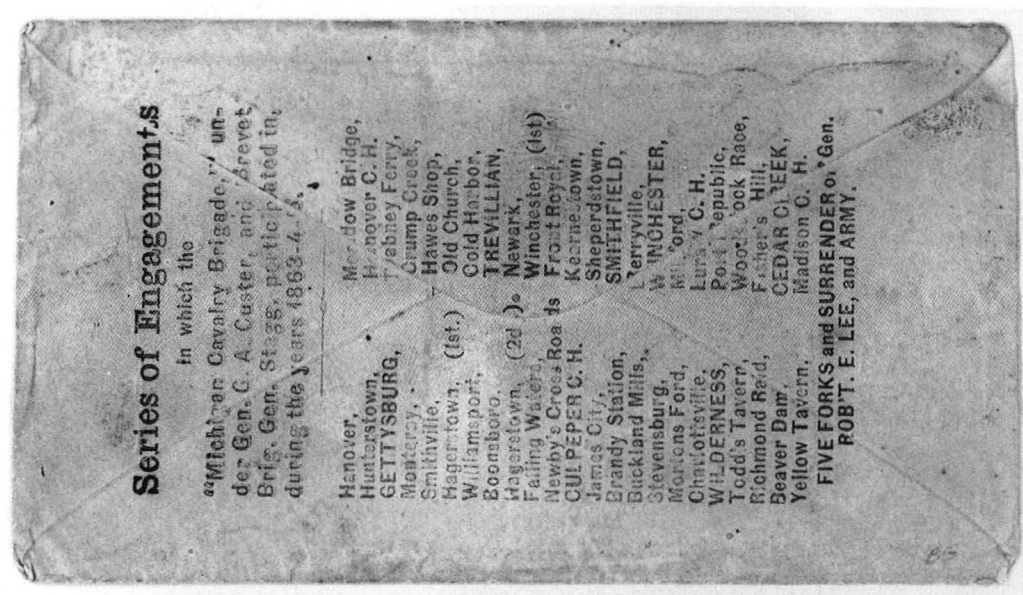 Series of Engagements
in which the
"Michigan Cavalry Brigade," un-
der Gen. G. A. Custer, and Brevet,
Brig. Gen. Stagg, participated in,
during the years 1863-4-5.
Hanover,
Hunterstown,
GETTYSBURG,
Monterey,
Smithville,
Hagerstown, (1st.)
Williamsport,
Boonsboro.
Hagerstown, (2d).
Falling Waters,
Newby's Cross Roads
CULPEPER C. H.
James City,
Brandy Station,
Buckland Mills,
Stevensburg,
Mortons Ford,
Charlottsville,
WILDERNESS,
Todds Tavern,
Richmond Raid,
Beaver Dam,
Yellow Tavern.
Meadow Bridge,
Hanover C. H.
Dabney Ferry,
Crump Creek,
Hawes Shop,
Old Church,
Cold Harbor,
TREVILLIAN,
Newark,
Winchester, (1st)
Front Royal,
Kearnestown,
Sheperdstown,
SMITHFIELD,
Berryville,
WINCHESTER,
Milford,
Luray C. H.
Port Republic,
Woodstock Race,
Fisher's Hill,
CEDAR CREEK,
Madison C. H.
FIVE FORKS and SURRENDER of Gen.
ROB'T. E. LEE, and ARMY.